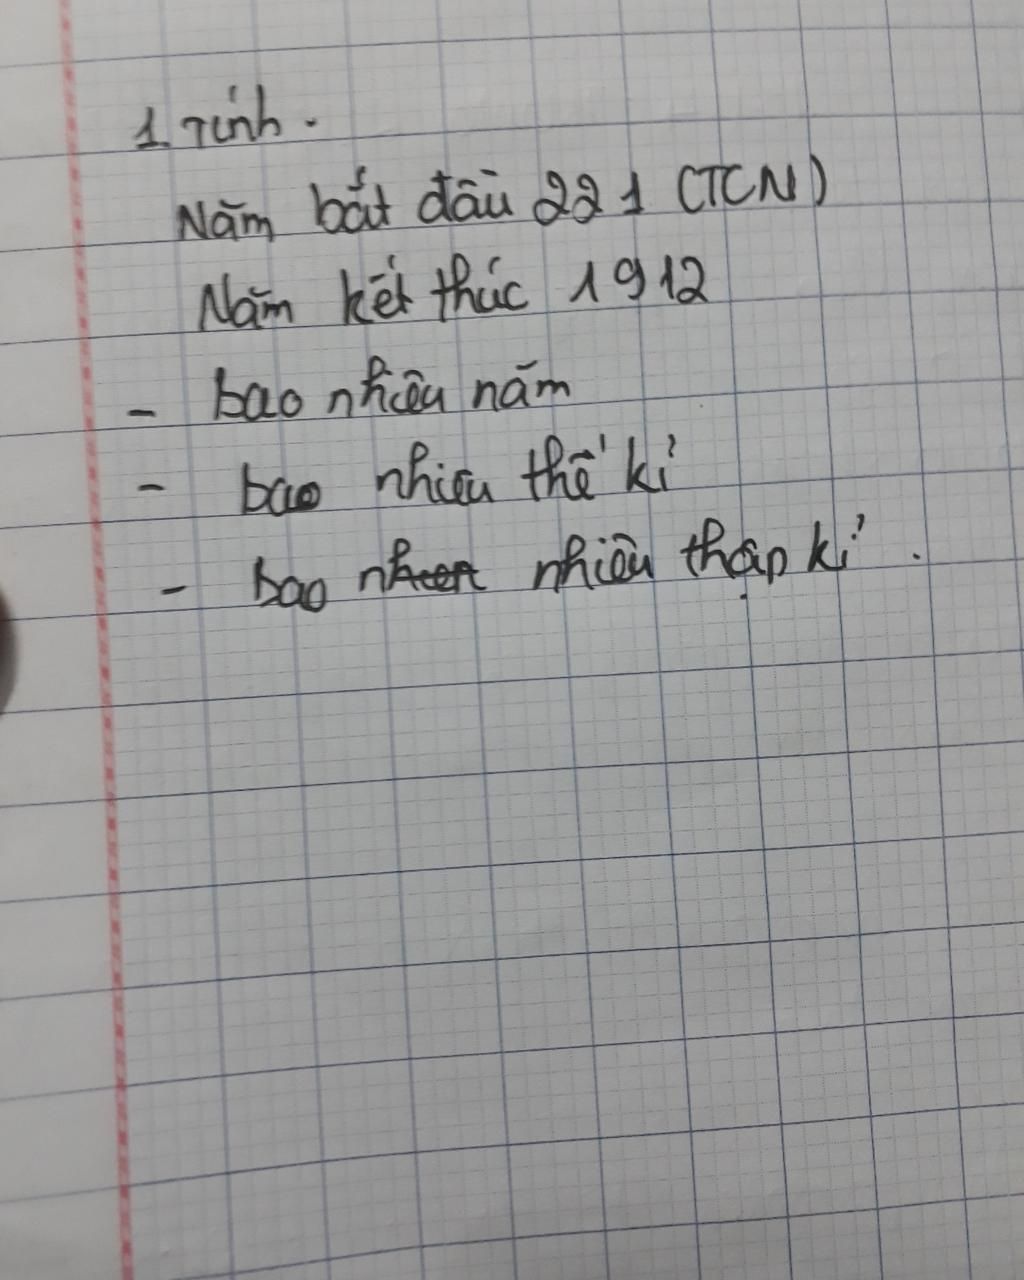 1. Tính.
Năm bắt đầu 221 (TCN)
Năm kết thúc 1912
- bao nhiêu năm
- bao nhiêu thế kỉ
- bao nhiêu thập kỉ.